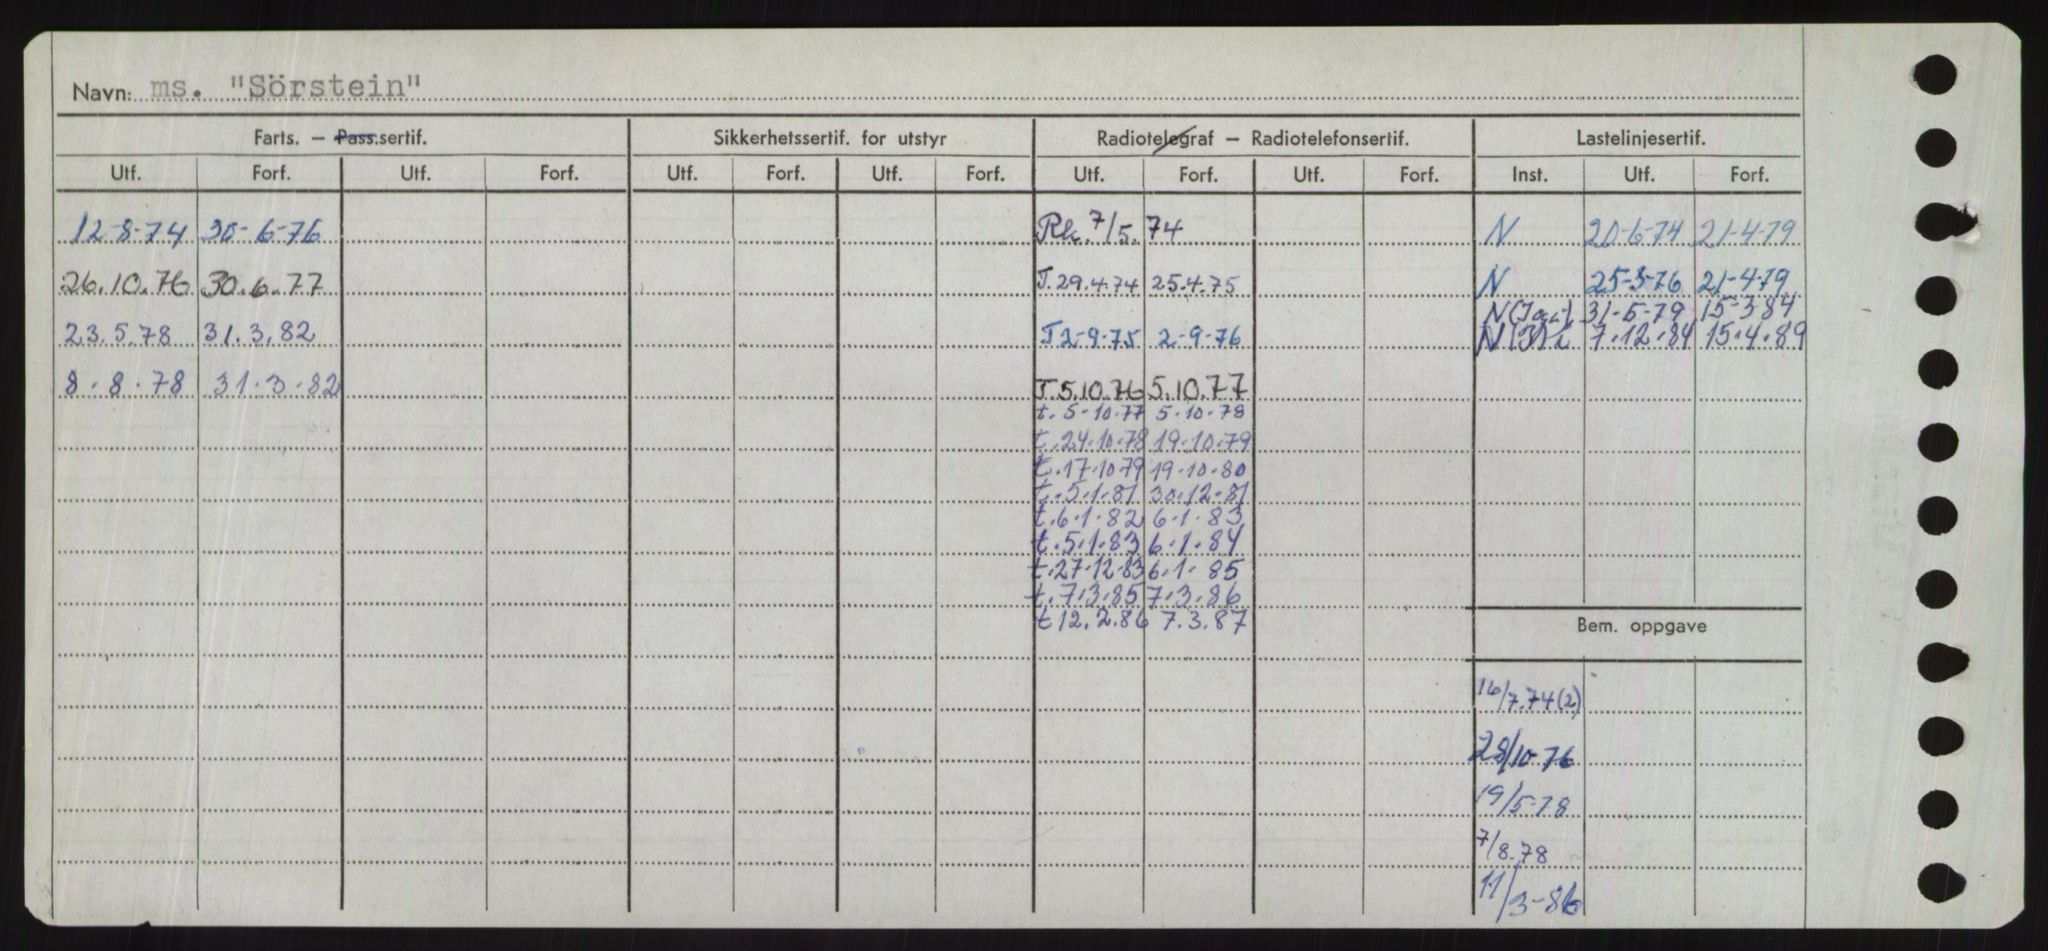 Navn: ms. "Sörstein"
Farts. — Pass.sertif. Sikkerhetssertif. for utstyr Radiotelegraf — Radiotelefonsertif. Lastelinjesertif.
Utf. Forf. Utf. Forf. Utf. Forf. Utf. Forf. Utf. Forf. Utf. Forf. Inst. Utf. Forf.
12-8-74 30-6-76 Rk. 7/5.74 N 20-6-74 21-4-79
26.10.76 30.6.77 T.29.4.74 25.4.75 N 25-3-76 21-4-79
N 31-5-79 15-3-84
23.5.78 31.3.82 T 2-9-75 2-9-76 N 7.12.84 15.4.89
8.8.78 31.3.82 T.5.10.76 5.10.77
t. 5-10.77 5.10.78
t.24.10.78 19.10.79
t.17.10.79 19.10.80
t.5.1.81 30.12.81
t.6.1.82 6.1.83
t.5.1.83 6.1.84
t.27.12.83 6.1.85
t.7.3.85 7.3.86
t 12.2.86 7.3.87
Bem. oppgave
16/7.74(2)
28/10-76
19/5-78
7/8.78
11/3-86